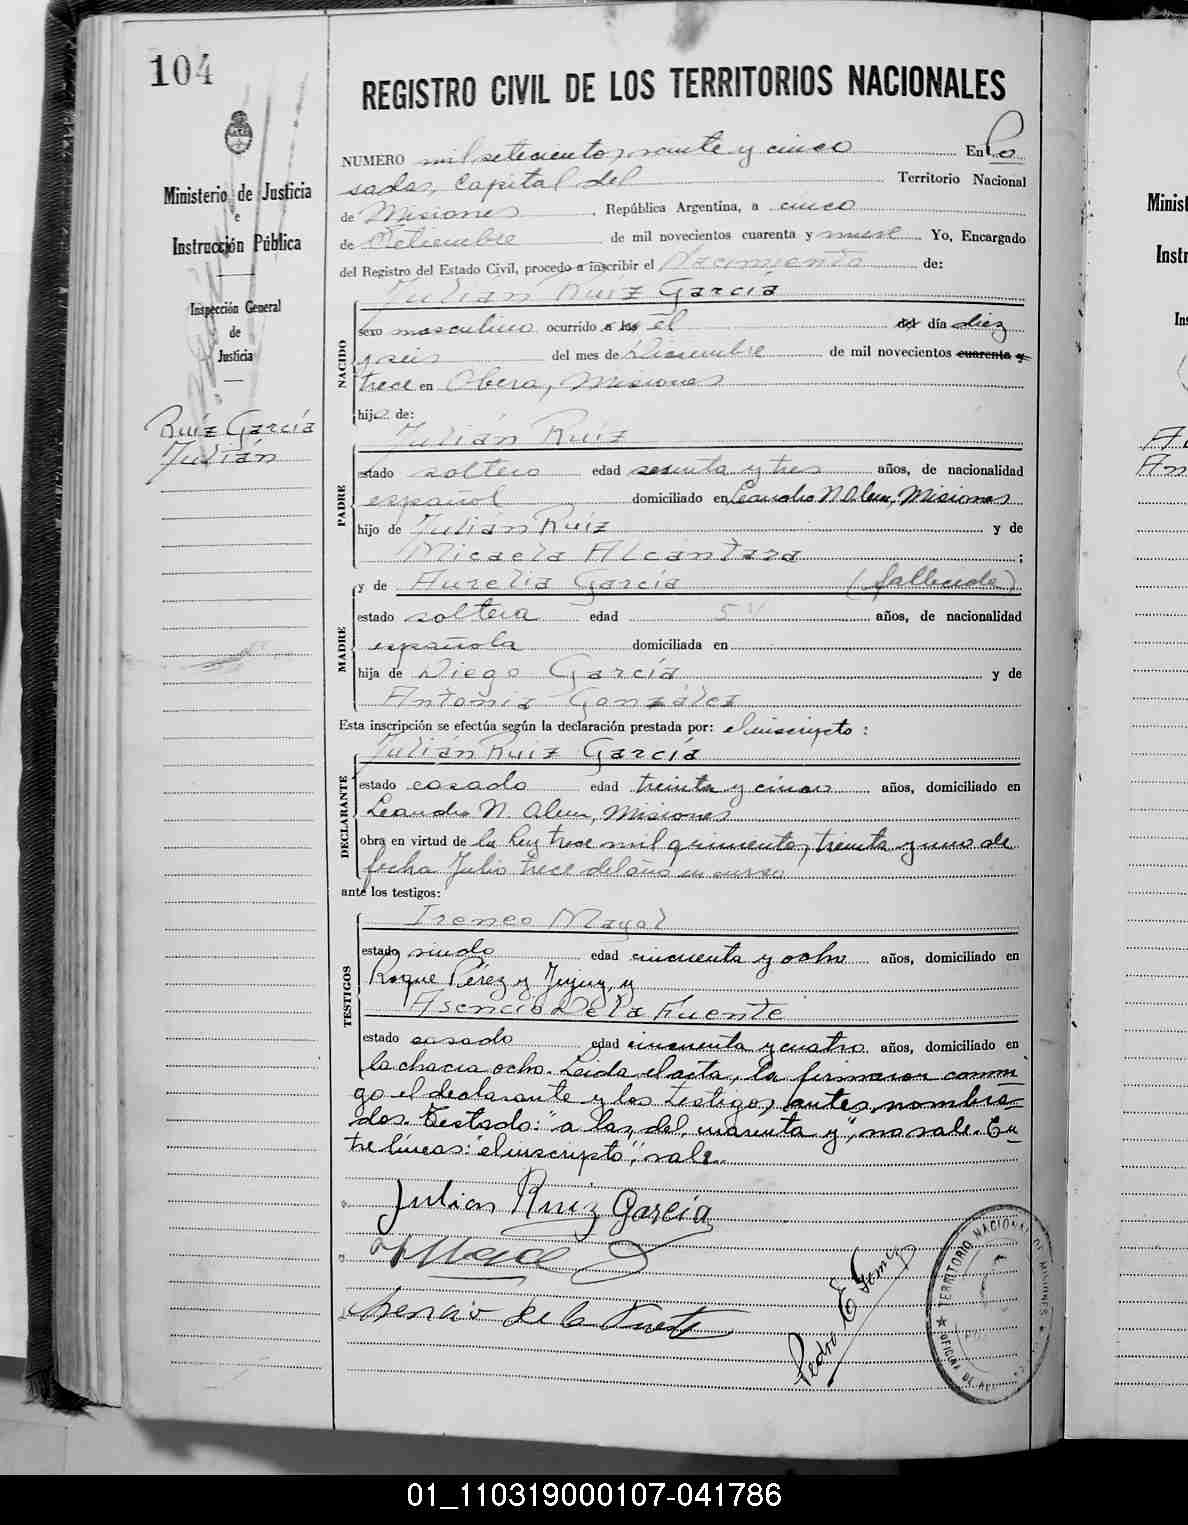 104
REGISTRO CIVIL DE LOS TERRITORIOS NACIONALES
Ministerio de Justicia
e
Instrucción Pública
Inspección General
de
Justicia
Ruíz García
Julián
NUMERO mil setecientos veinte y cinco En Po
sadas, Capital del Territorio Nacional
de Misiones, República Argentina, a cinco
de Setiembre de mil novecientos cuarenta y nueve Yo, Encargado
del Registro del Estado Civil, procedo a inscribir el Nacimiento de:
Julián Ruíz García
NACIDO
sexo masculino ocurrido a las el del día diez
y seis del mes de Diciembre de mil novecientos cuarenta y
trece en Obera, Misiones
hijo de:
Julián Ruíz
PADRE
estado soltero edad sesenta y tres años, de nacionalidad
español domiciliado en Leandro N Alem, Misiones
hijo de Julián Ruíz y de
Micaela Alcántara ;
y de Aurelia García (fallecida)
MADRE
estado soltera edad años, de nacionalidad
española domiciliada en
hija de Diego García y de
Antonia González
Esta inscripción se efectúa según la declaración prestada por: el inscripto :
Julián Ruiz García
DECLARANTE
estado casado edad treinta y cinco años, domiciliado en
Leandro N. Alem, Misiones
obra en virtud de la Ley trece mil quinientos treinta y uno de
fecha Julio trece del año en curso
ante los testigos:
Ireneo Mayol
TESTIGOS
estado viudo edad cincuenta y ocho años, domiciliado en
Roque Pérez y Jujuy, y
Asencio De la Fuente
estado casado edad cincuenta y cuatro años, domiciliado en
la chacra ocho. Leida el acta, la firmaron conmi-
go el declarante y los testigos antes nombra-
dos. Testado: "a las, del, cuarenta y", no vale. En-
tre líneas: "el inscripto", vale.
Julian Ruiz García
Asencio de la Fuente
Pedro E Gomez
TERRITORIO NACIONAL DE MISIONES
OFICINA DE
01_110319000107-041786